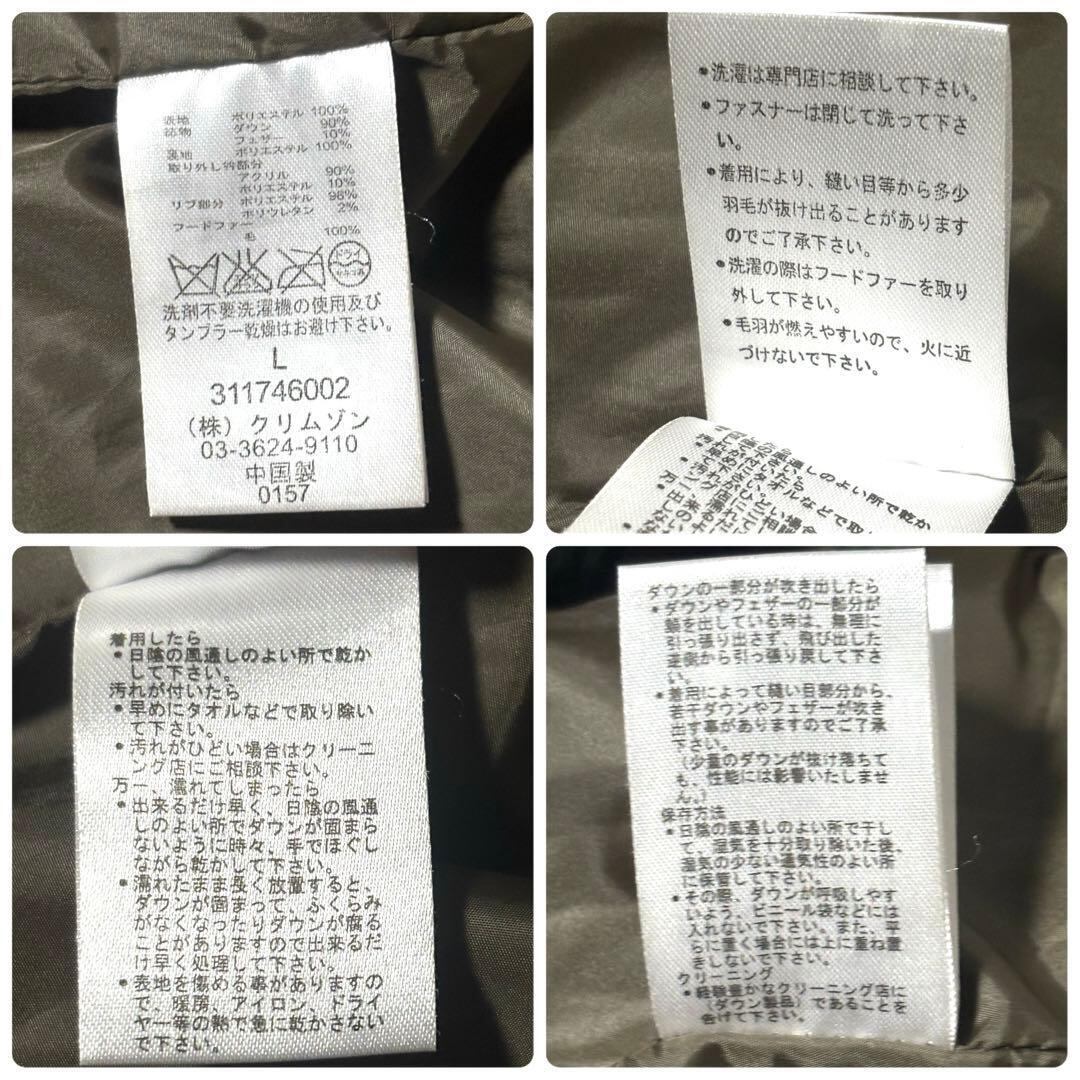 表地 ポリエステル 100%
詰物 ダウン 90%
フェザー 10%
裏地 ポリエステル 100%
取り外し衿部分
アクリル 90%
ポリエステル 10%
リブ部分 ポリエステル 98%
ポリウレタン 2%
フードファー
毛 100%
ドライ
セキユ系
洗剤不要洗濯機の使用及び
タンブラー乾燥はお避け下さい。
L
311746002
(株) クリムゾン
03-3624-9110
中国製
0157
•洗濯は専門店に相談して下さい。
•ファスナーは閉じて洗って下さ
い。
•着用により、縫い目等から多少
羽毛が抜け出ることがあります
のでご了承下さい。
•洗濯の際はフードファーを取り
外して下さい。
•毛羽が燃えやすいので、火に近
づけないで下さい。
着用したら
•日陰の風通しのよい所で乾か
して下さい。
汚れが付いたら
•早めにタオルなどで取り除い
て下さい。
•汚れがひどい場合はクリーニ
ング店にご相談下さい。
万一、濡れてしまったら
•出来るだけ早く、日陰の風通
しのよい所でダウンが固まら
ないように時々、手でほぐし
ながら乾かして下さい。
•濡れたまま長く放置すると、
ダウンが固まって、ふくらみ
がなくなったりダウンが腐る
ことがありますので出来るだ
け早く処理して下さい。
•表地を傷める事がありますの
で、暖房、アイロン、ドライ
ヤー等の熱で急に乾かさない
で下さい。
ダウンの一部分が吹き出したら
•ダウンやフェザーの一部分が
顔を出している時は、無理に
引っ張り出さず、飛び出した
逆側から引っ張り戻して下さ
い。
•着用によって縫い目部分から、
若干ダウンやフェザーが吹き
出す事がありますのでご了承
下さい。
(少量のダウンが抜け落ちて
も、性能には影響いたしませ
ん。)
保存方法
•日陰の風通しのよい所で干し
て、湿気を十分取り除いた後、
湿気の少ない通気性のよい所
に保管して下さい。
•その際、ダウンが呼吸しやす
いよう、ビニール袋などには
入れないで下さい。また、平
らに置く場合には上に重ね置
きしないで下さい。
クリーニング
•経験豊かなクリーニング店に
(ダウン製品)であることを
告げて下さい。